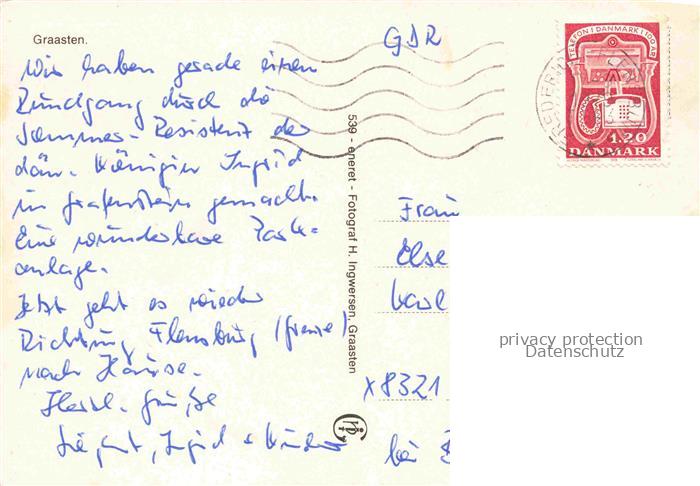 Graasten.
GDR
Wir haben gerade einen
Rundgang durch die
Sommer-Residenz der
dän. Königin Ingrid
in Grafenstein gemacht.
Eine wunderbare Park-
anlage.
Jetzt geht es wieder
Richtung Flensburg (Grenze)
nach Hause.
Herzl. Grüße
Ingrid + Kinder
539 - eneret - Fotograf H. Ingwersen, Graasten
TELEFON I DANMARK I 100 ÅR
1.20
DANMARK
Frau
Else
Karl
X8321
bei
privacy protection
Datenschutz